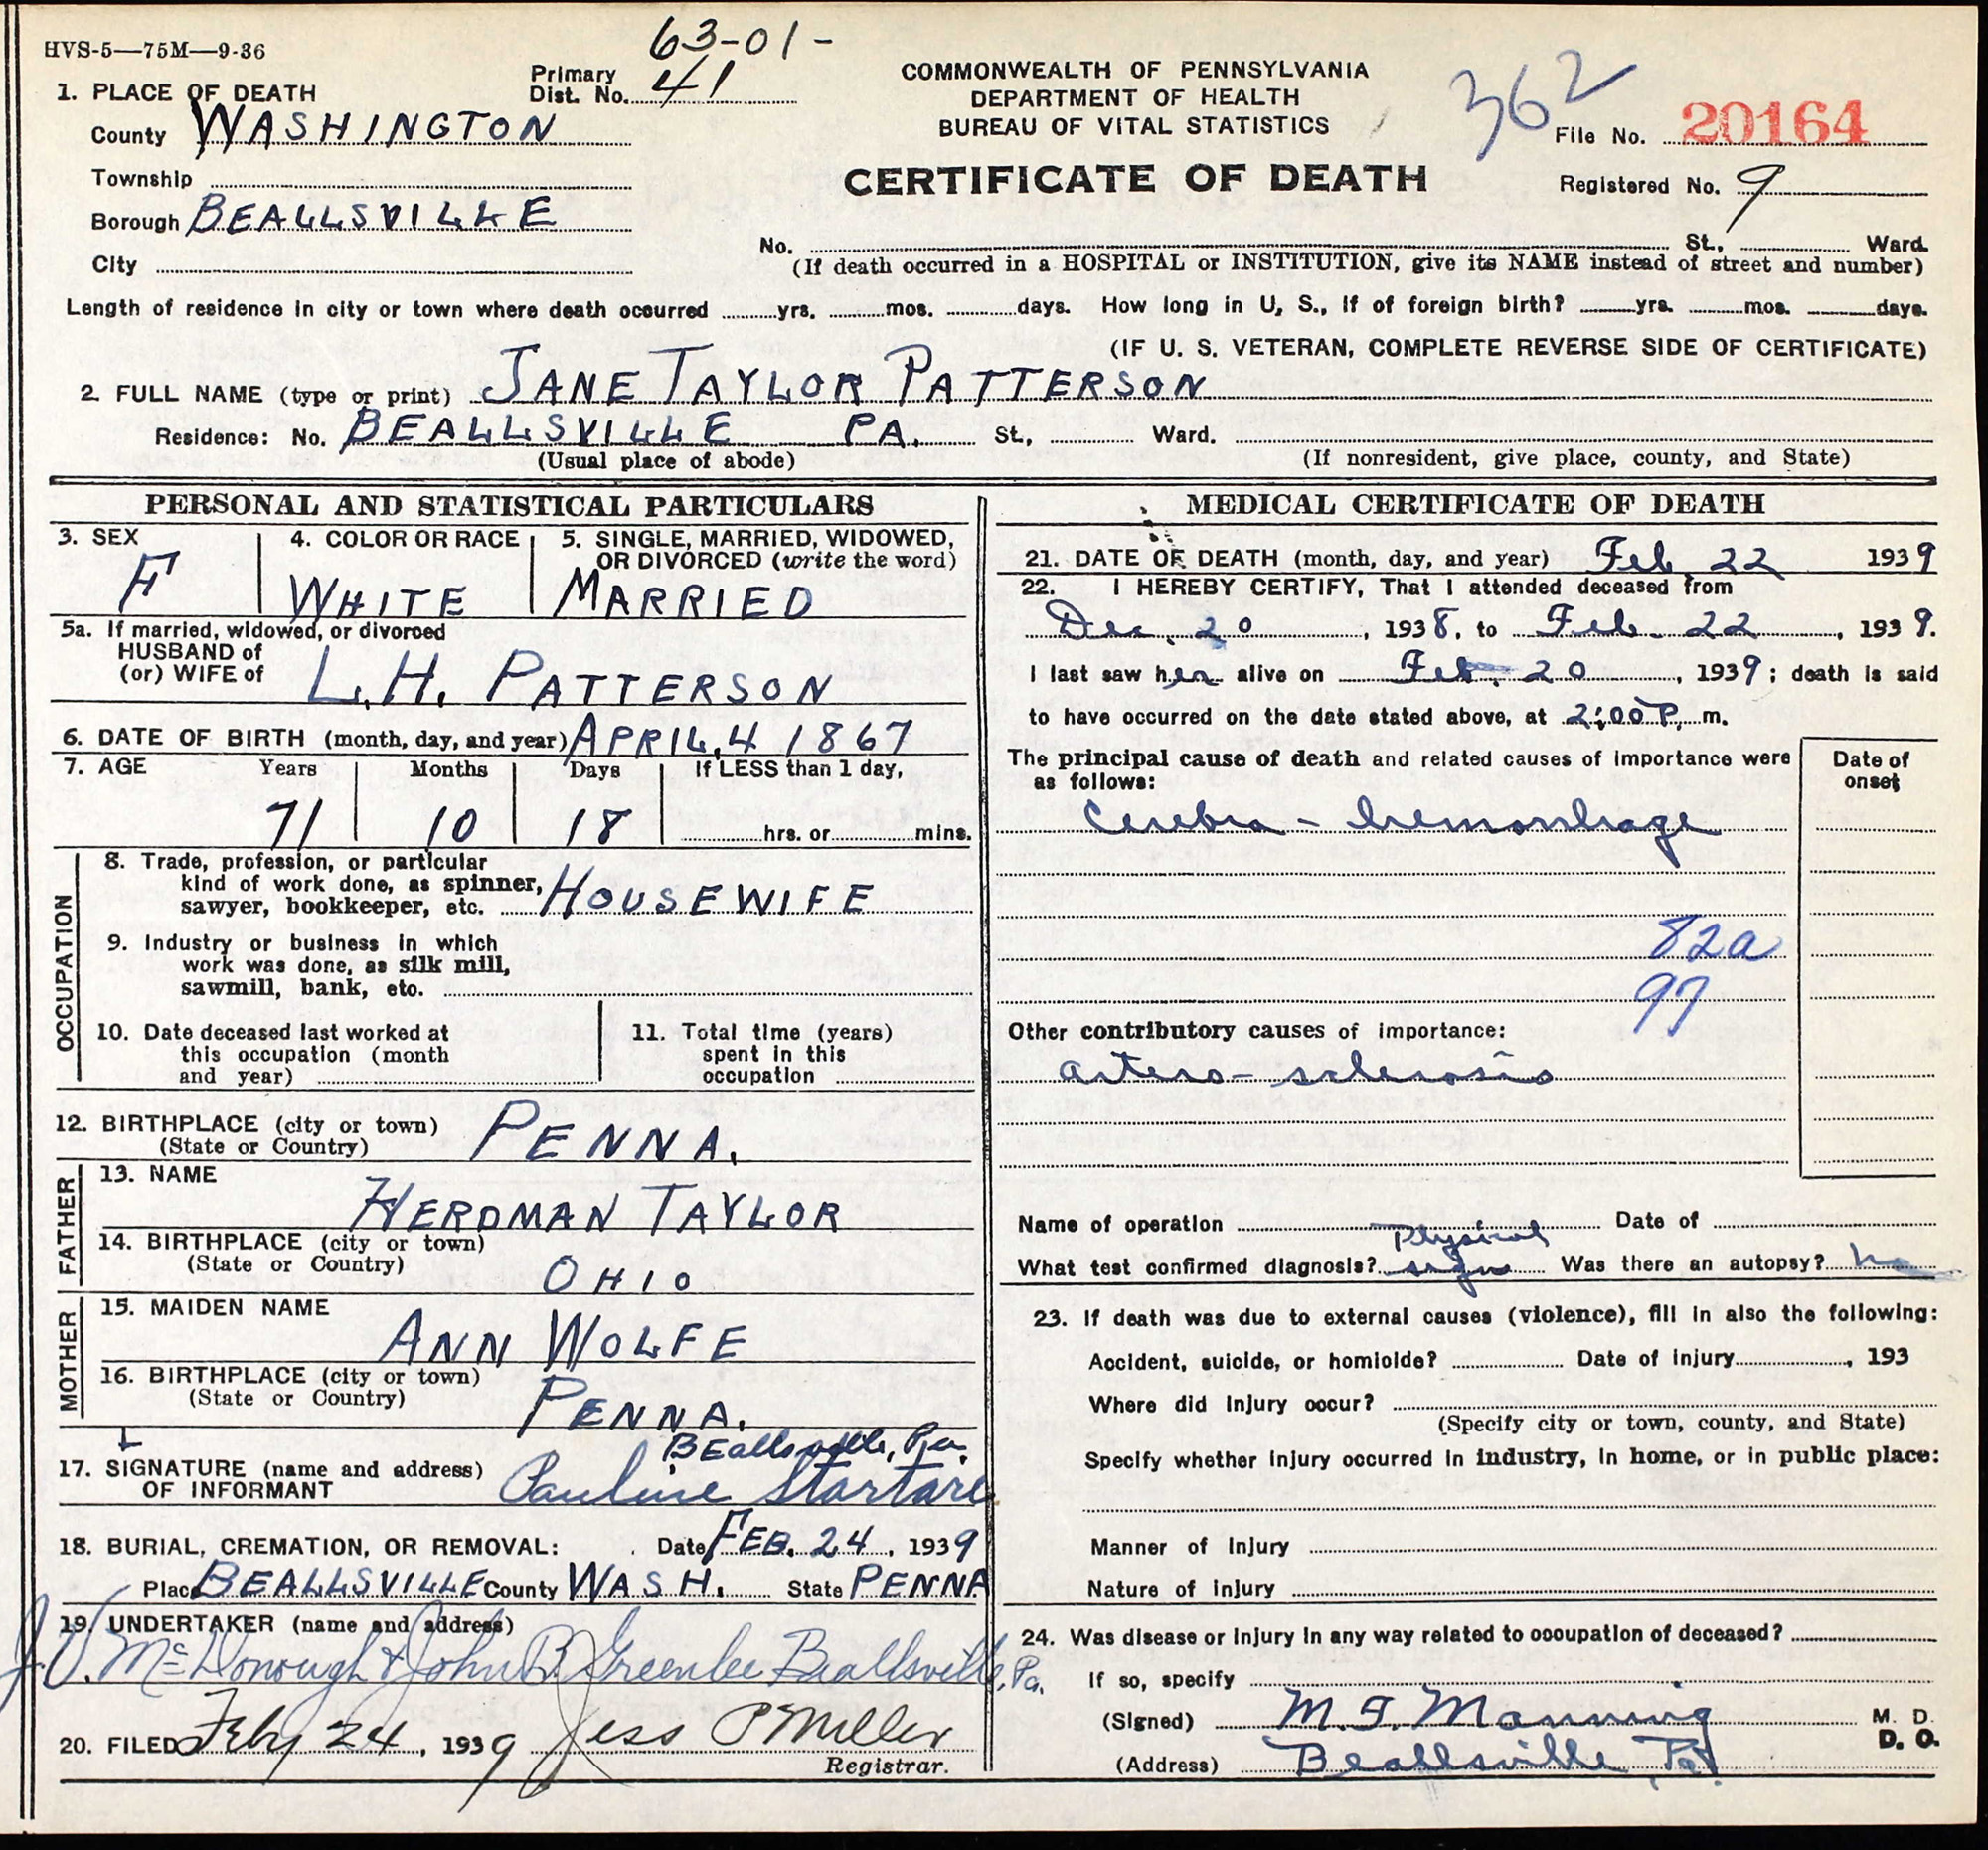 HVS-5—75M—9-36
63-01-
Primary
Dist. No. 41
COMMONWEALTH OF PENNSYLVANIA
DEPARTMENT OF HEALTH
BUREAU OF VITAL STATISTICS
362
File No. 20164
CERTIFICATE OF DEATH
Registered No. 9
1. PLACE OF DEATH
County WASHINGTON
Township
Borough BEALLSVILLE
City
No. St., Ward.
(If death occurred in a HOSPITAL or INSTITUTION, give its NAME instead of street and number)
Length of residence in city or town where death occurred yrs. mos. days. How long in U. S., if of foreign birth? yrs. mos. days.
(IF U. S. VETERAN, COMPLETE REVERSE SIDE OF CERTIFICATE)
2. FULL NAME (type or print) JANE TAYLOR PATTERSON
Residence: No. BEALLSVILLE PA. St., Ward.
(Usual place of abode) (If nonresident, give place, county, and State)
PERSONAL AND STATISTICAL PARTICULARS
3. SEX
F
4. COLOR OR RACE
WHITE
5. SINGLE, MARRIED, WIDOWED,
OR DIVORCED (write the word)
MARRIED
5a. If married, widowed, or divorced
HUSBAND of
(or) WIFE of L. H. PATTERSON
6. DATE OF BIRTH (month, day, and year) APRIL, 4 1867
7. AGE Years Months Days If LESS than 1 day,
71 10 18 hrs. or mins.
OCCUPATION
8. Trade, profession, or particular
kind of work done, as spinner,
sawyer, bookkeeper, etc. HOUSEWIFE
9. Industry or business in which
work was done, as silk mill,
sawmill, bank, etc.
10. Date deceased last worked at
this occupation (month
and year)
11. Total time (years)
spent in this
occupation
12. BIRTHPLACE (city or town)
(State or Country) PENNA.
FATHER
13. NAME
HERDMAN TAYLOR
14. BIRTHPLACE (city or town)
(State or Country) OHIO
MOTHER
15. MAIDEN NAME
ANN WOLFE
16. BIRTHPLACE (city or town)
(State or Country) PENNA.
Beallsville, Pa.
17. SIGNATURE (name and address)
OF INFORMANT Pauline Startare
18. BURIAL, CREMATION, OR REMOVAL: Date FEB. 24, 1939
Place BEALLSVILLE County WASH. State PENNA
19. UNDERTAKER (name and address)
J. V. McDonough & John B. Greenlee Beallsville, Pa.
20. FILED Feby 24, 1939 Jess P Miller
Registrar.
MEDICAL CERTIFICATE OF DEATH
21. DATE OF DEATH (month, day, and year) Feb 22 1939
22. I HEREBY CERTIFY, That I attended deceased from
Dec. 20, 1938, to Feb. 22, 1939.
I last saw her alive on Feb. 20, 1939; death is said
to have occurred on the date stated above, at 2:00 P. m.
The principal cause of death and related causes of importance were
as follows:
Date of
onset
Cerebra - hemorrhage
82a
97
Other contributory causes of importance:
artero - sclerosis
Name of operation Date of
Physical
What test confirmed diagnosis? signs Was there an autopsy? no
23. If death was due to external causes (violence), fill in also the following:
Accident, suicide, or homicide? Date of injury , 193
Where did injury occur?
(Specify city or town, county, and State)
Specify whether injury occurred in industry, in home, or in public place:
Manner of injury
Nature of injury
24. Was disease or injury in any way related to occupation of deceased?
If so, specify
(Signed) M. F. Manning M. D.
D. O.
(Address) Beallsville, Pa.